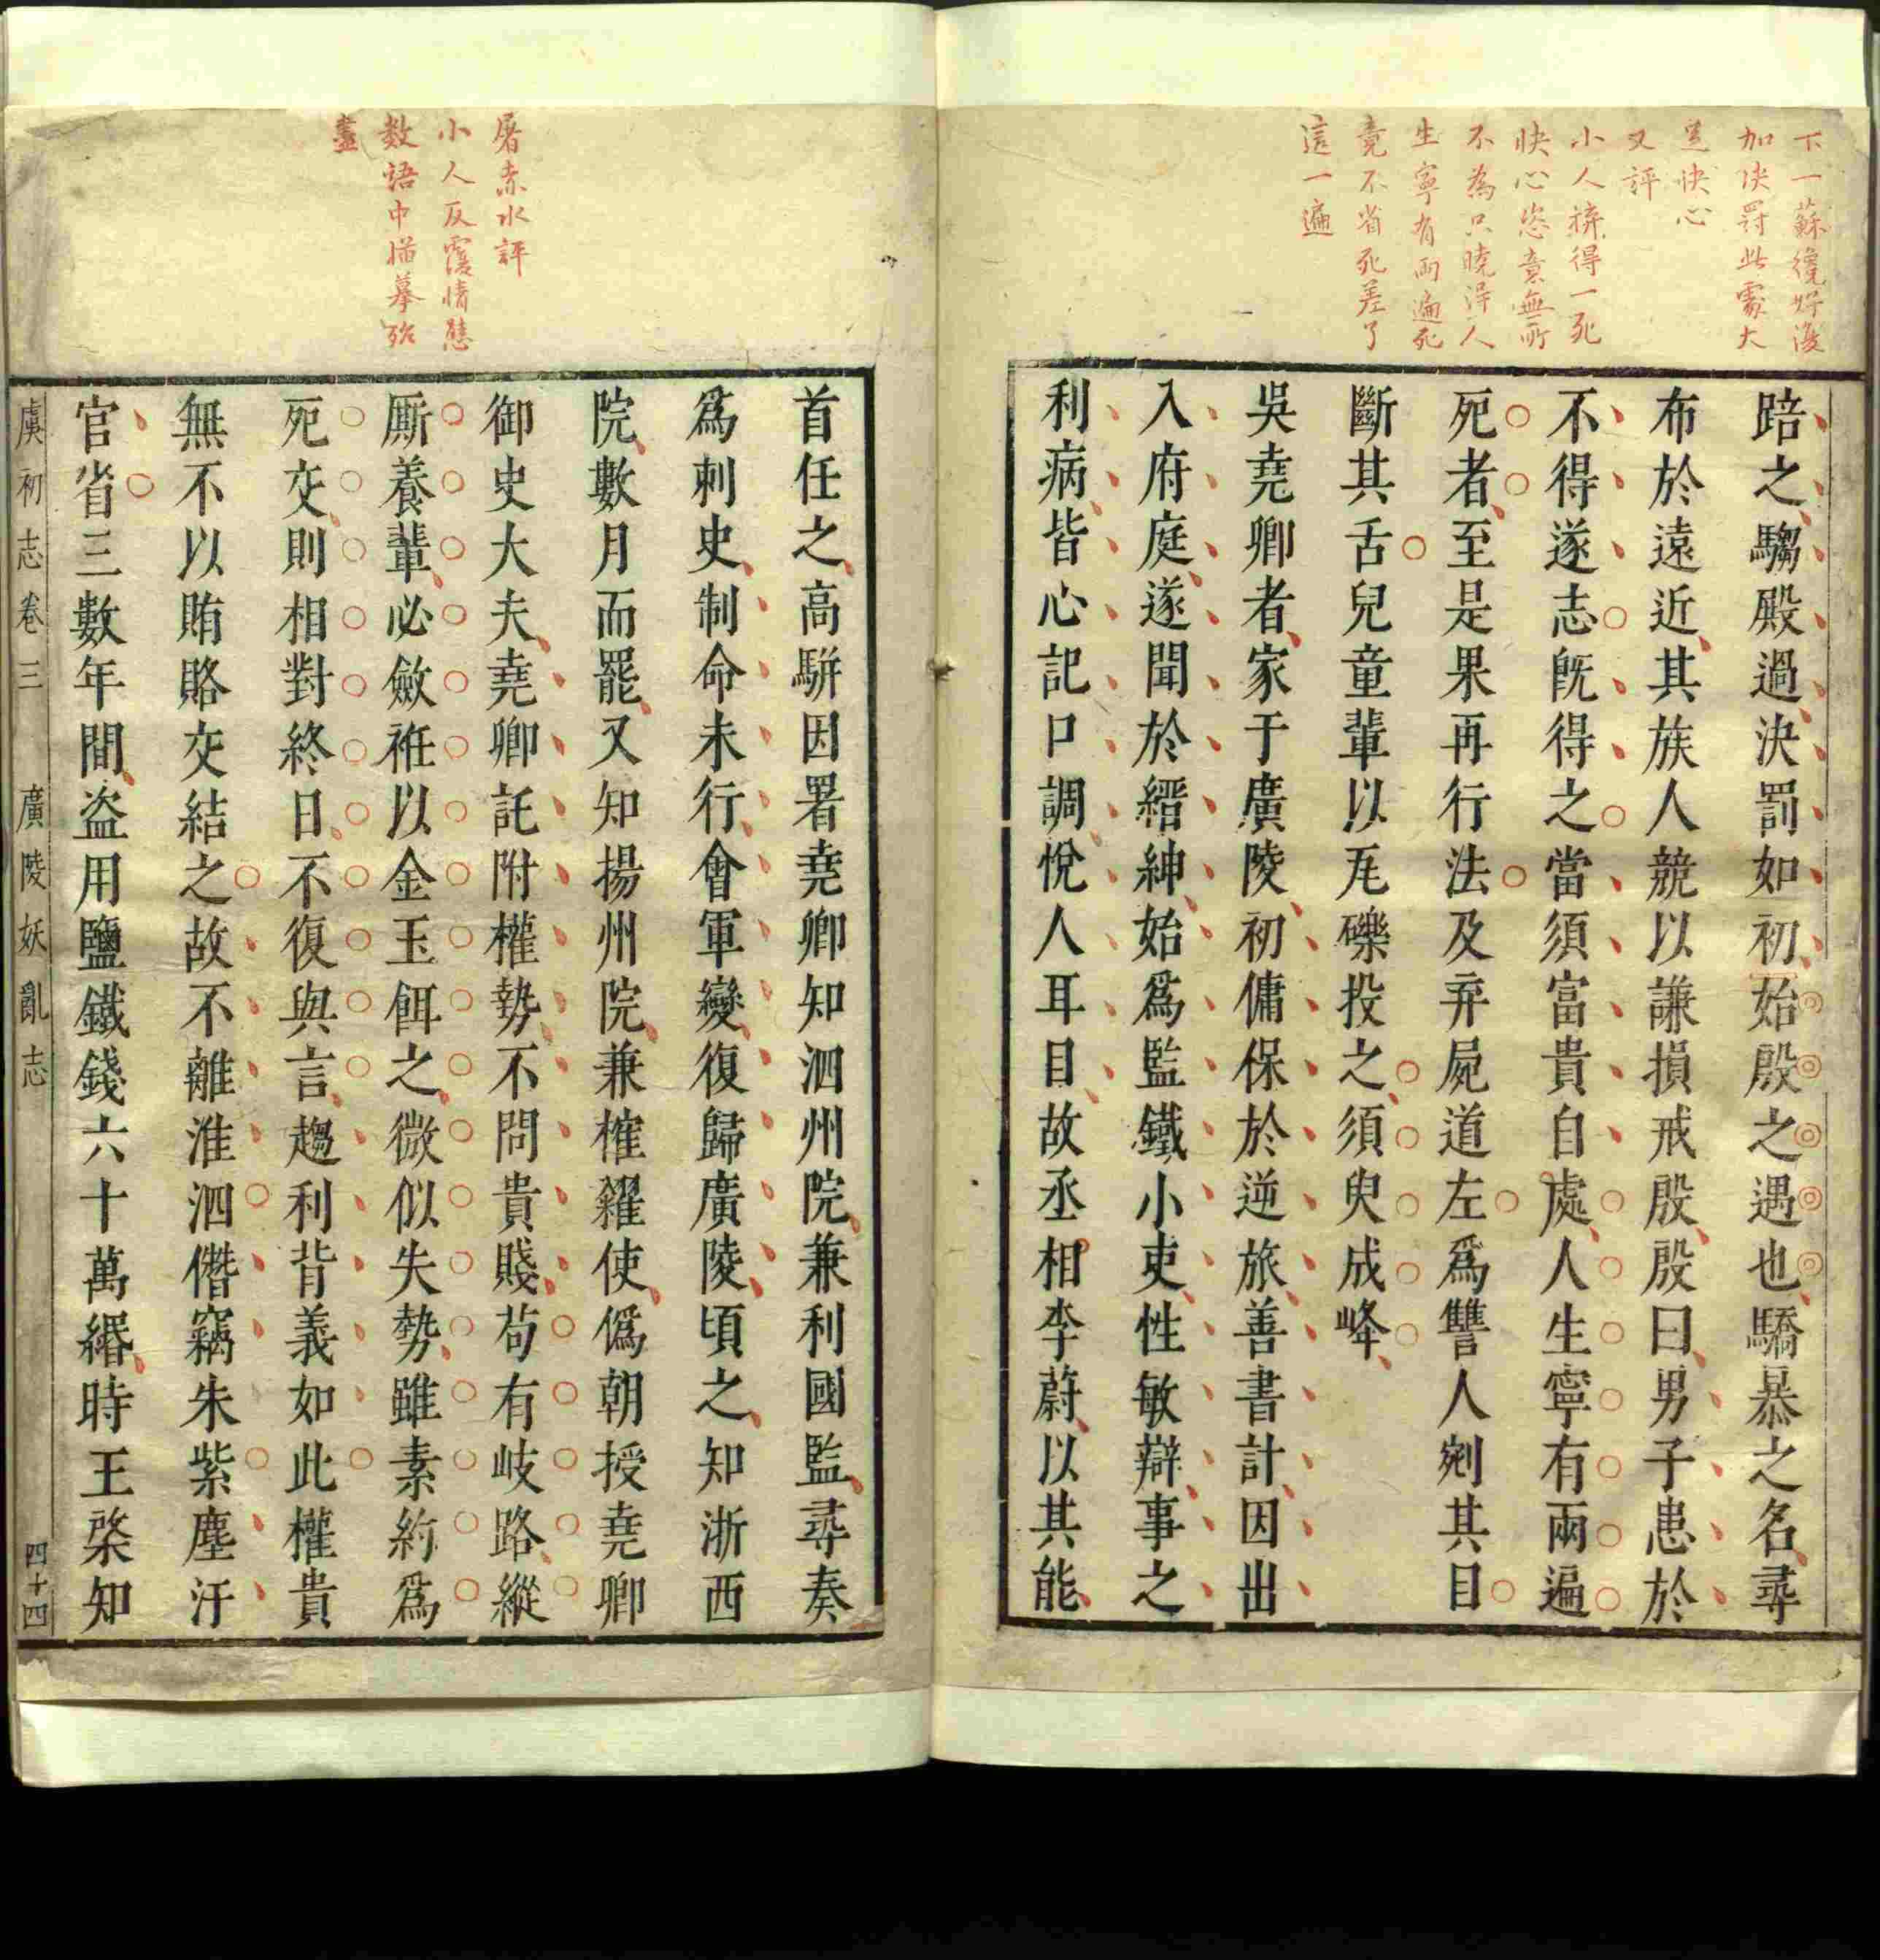 下一蘇纔好湲
加决罰此處大
是快心
又評
小人拚得一死
快心恣意無所
不為只曉得人
生寧有兩遍死
竟不省死差了
這一遍
踣之騶殿過決罰如初始殷之遇也驕暴之名尋
布於遠近其族人競以謙損戒殷殷曰男子患於
不得遂志旣得之當須富貴自處人生寧有兩遍
死者至是果再行法及弃屍道左爲讐人剜其目
斷其舌兒童輩以瓦礫投之須臾成峰
吳堯卿者家于廣陵初傭保於逆旅善書計因出
入府庭遂聞於縉紳始爲監鐵小吏性敏辯事之
利病皆心記口調悅人耳目故丞相李蔚以其能
屠赤水評
小人反覆情態
数語中描摹殆
盡
首任之高駢因署堯卿知泗州院兼利國監尋奏
爲刺史制命未行會軍變復歸廣陵頃之知浙西
院數月而罷又知揚州院兼榷糴使僞朝授堯卿
御史大夫堯卿託附權勢不問貴賤苟有岐路縱
厮養輩必斂袵以金玉餌之微似失勢雖素約爲
死交則相對終日不復與言趨利背義如此權貴
無不以賄賂交結之故不離淮泗僭竊朱紫塵汙
官省三數年間盗用鹽鐵錢六十萬緡時王棨知
虞初志卷三 廣陵妖亂志 四十四